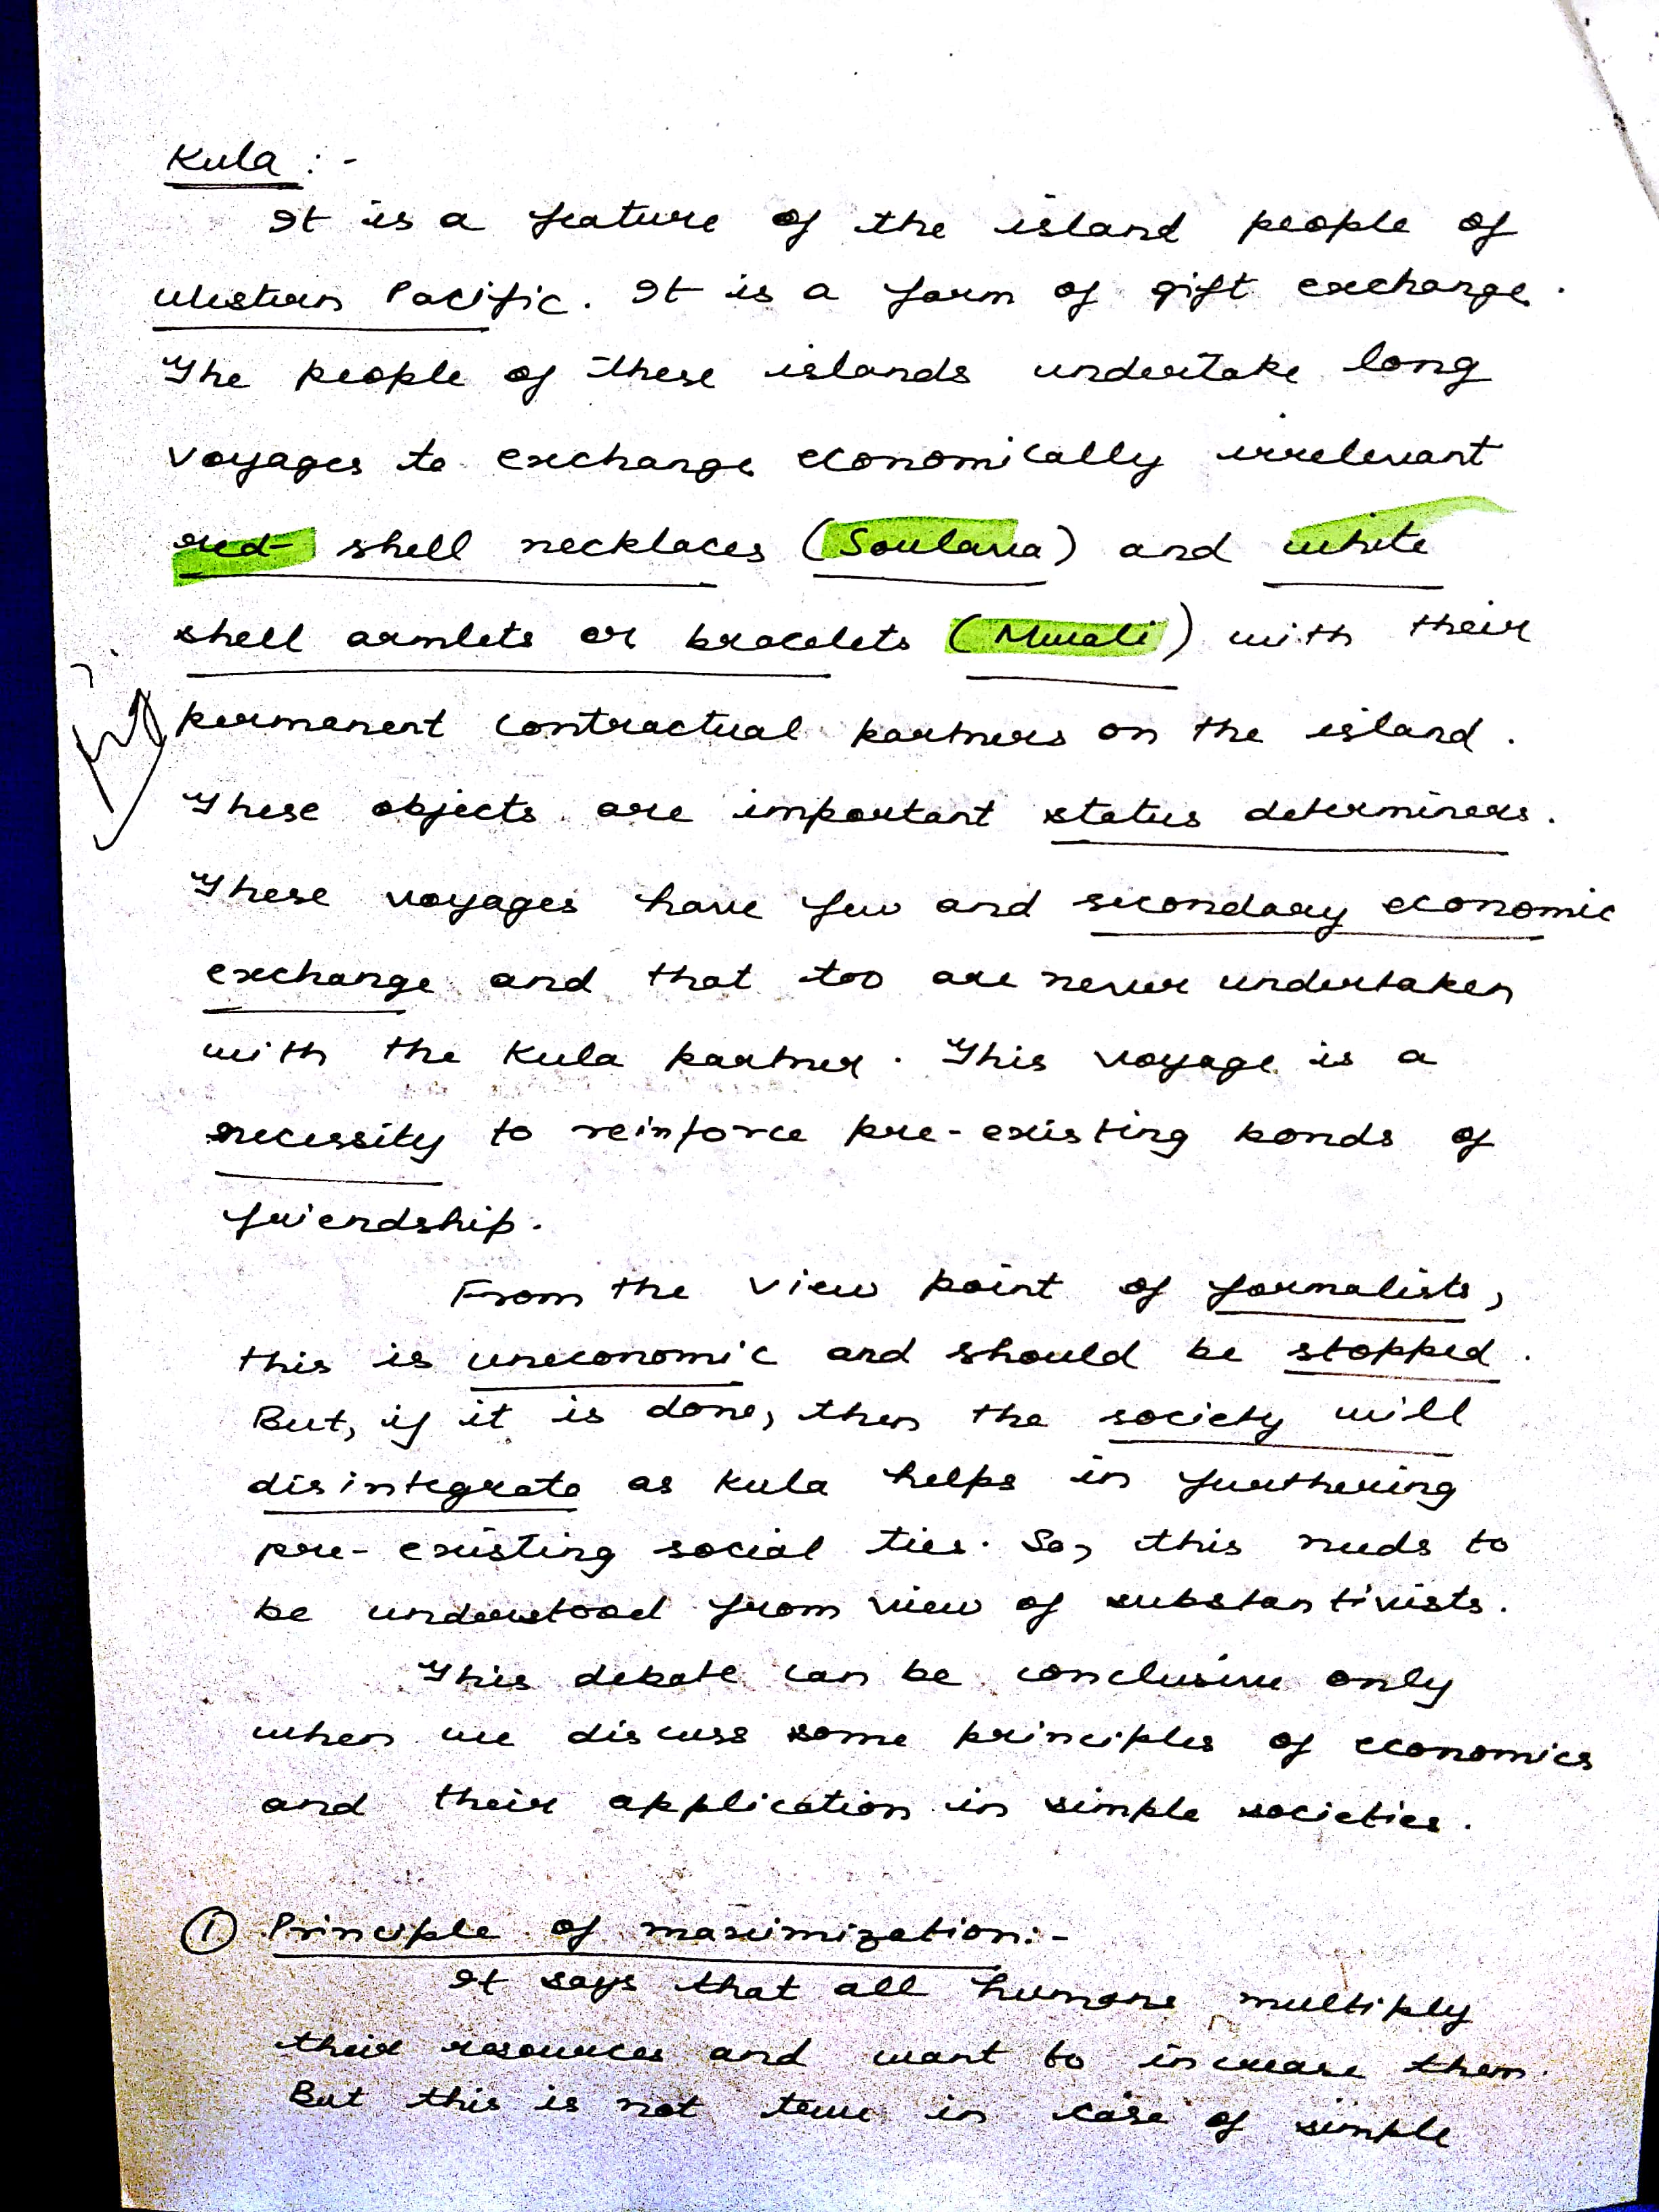 Kula :-
It is a feature of the island people of
Western Pacific. It is a form of gift exchange.
The people of these islands undertake long
voyages to exchange economically irrelevant
red shell necklaces (Soulava) and white
shell armlets or bracelets (Mwali) with their
permanent contractual partners on the island.
These objects are important status determiners.
These voyages have few and secondary economic
exchange and that too are never undertaken
with the Kula partner. This voyage is a
necessity to reinforce pre-existing bonds of
friendship.
From the view point of formalists,
this is uneconomic and should be stopped.
But, if it is done, then the society will
disintegrate as Kula helps in furthering
pre-existing social ties. So, this needs to
be understood from view of substantivists.
This debate can be conclusive only
when we discuss some principles of economics
and their application in simple societies.
① Principle of maximization:-
It says that all humans multiply
their resources and want to increase them.
But this is not true in case of simple